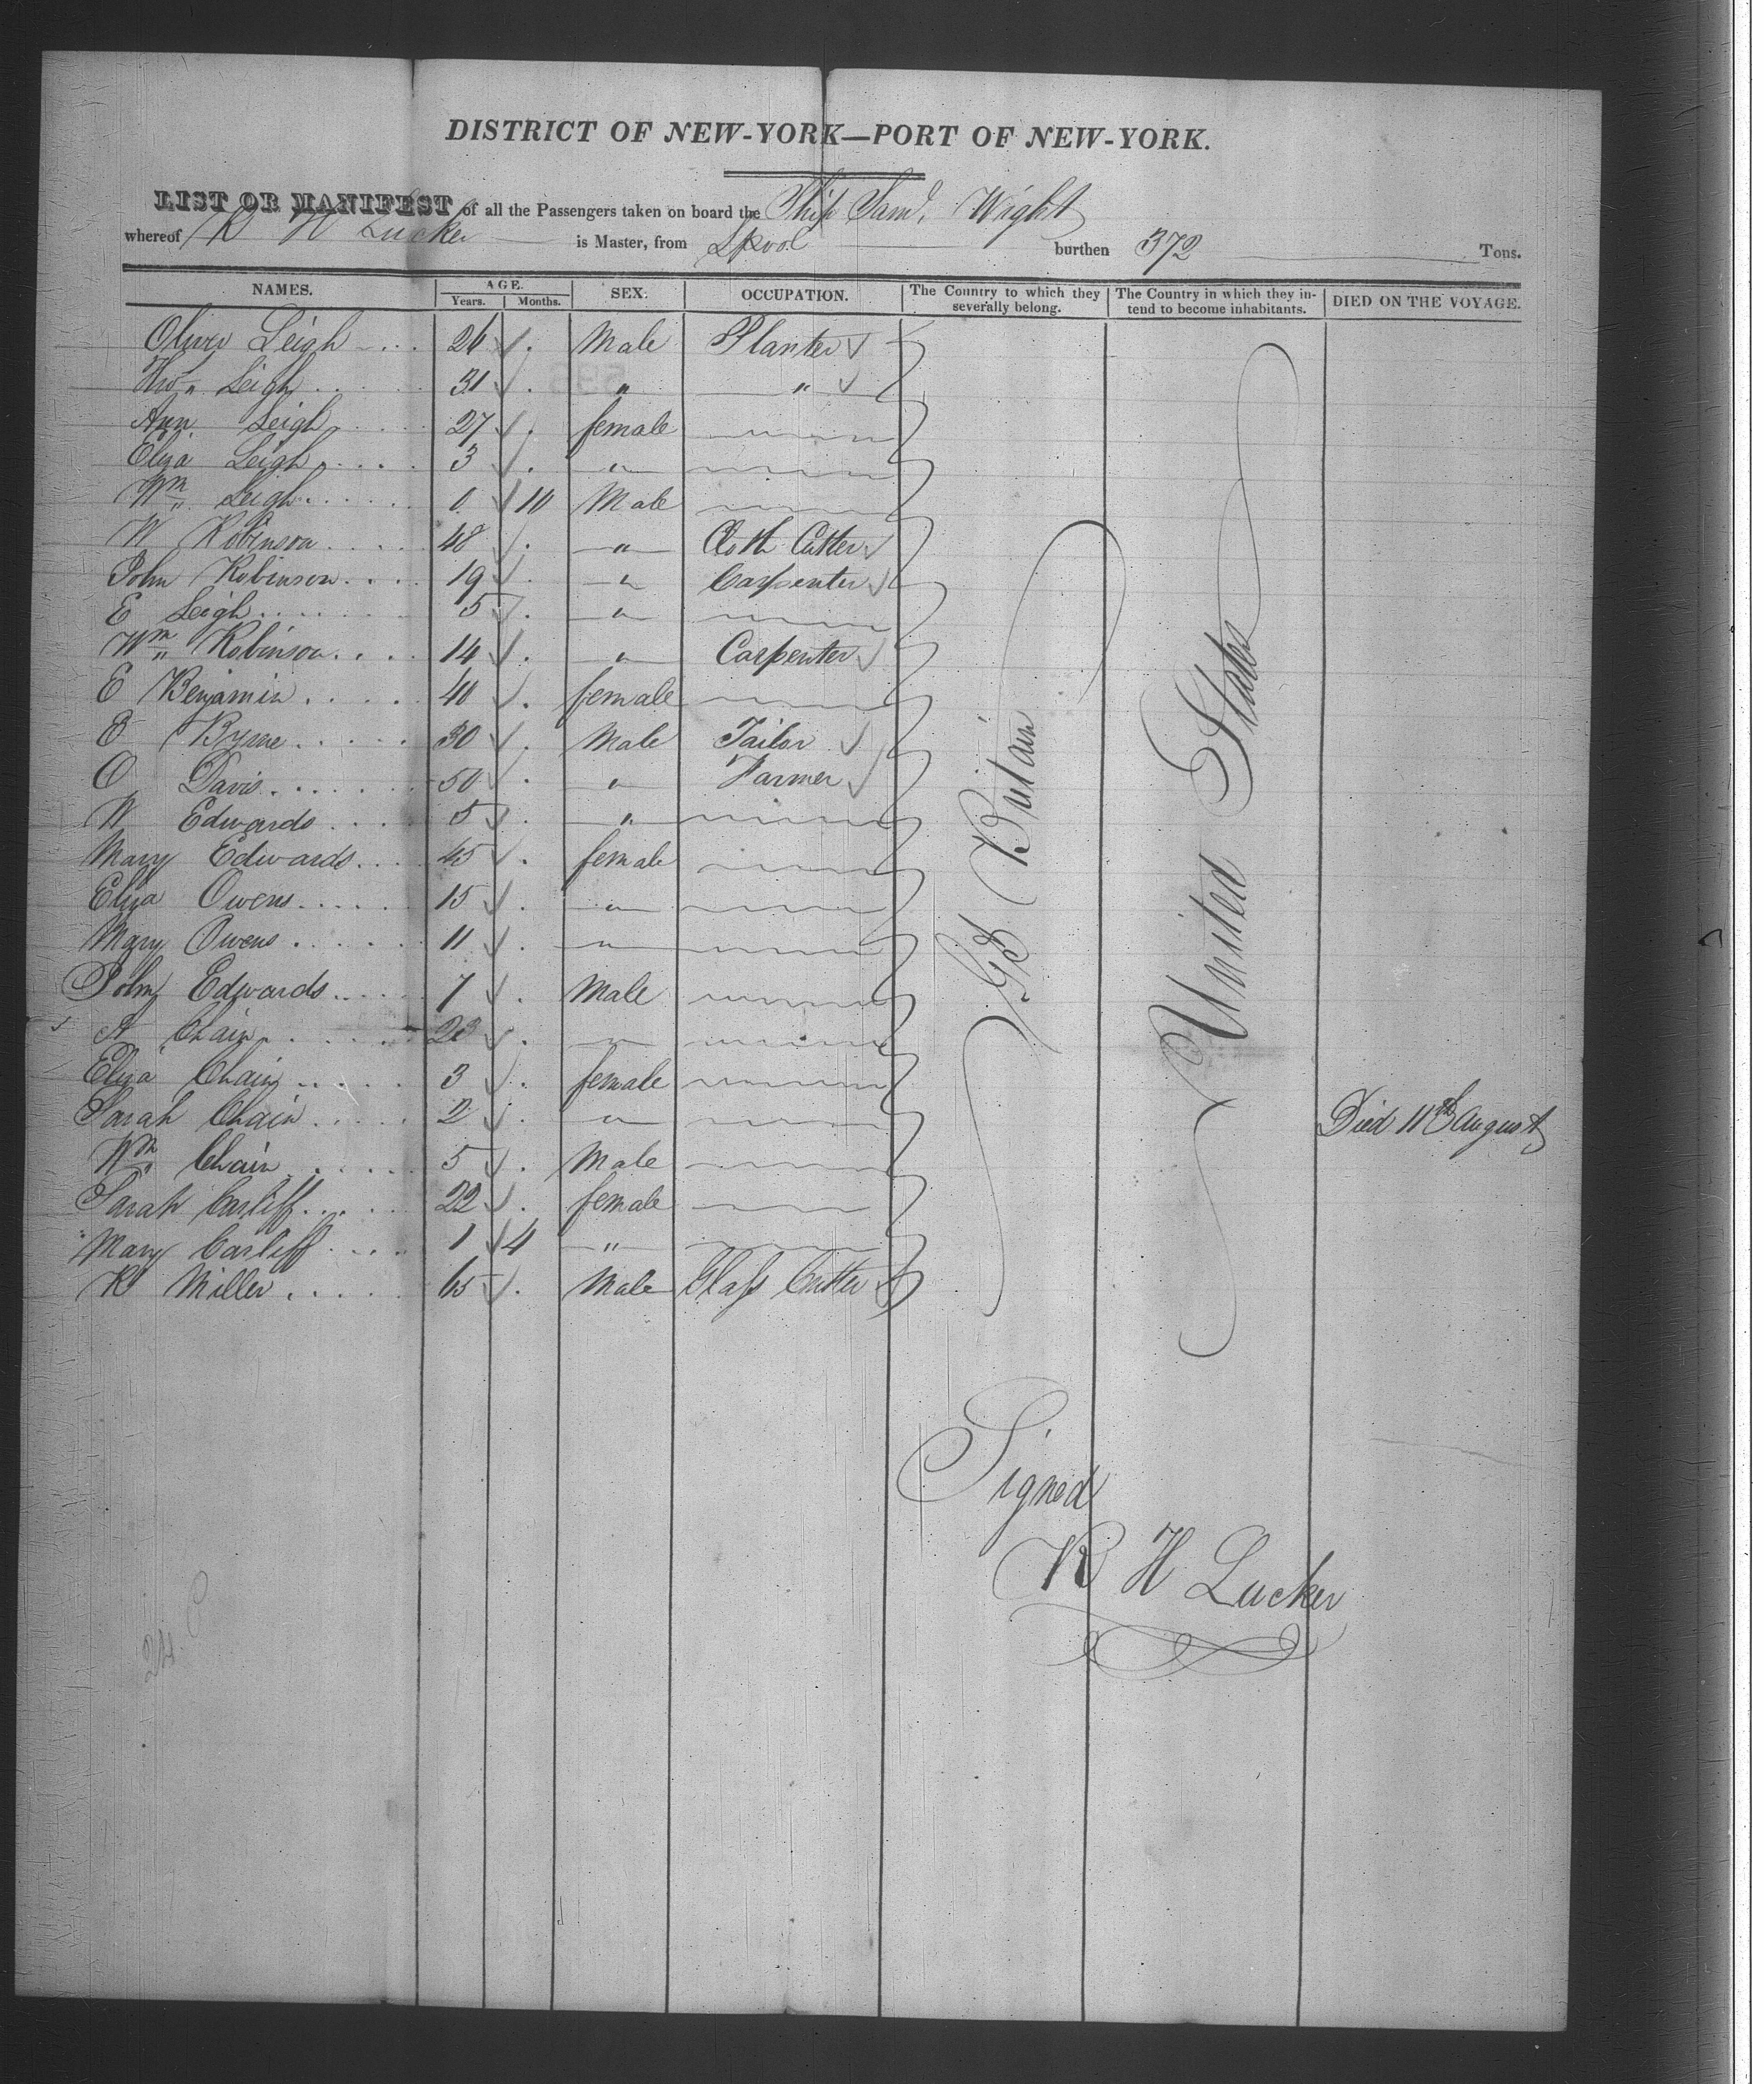 DISTRICT OF NEW-YORK—PORT OF NEW-YORK.
LIST OR MANIFEST of all the Passengers taken on board the Ship Saml. Wright
whereof R H Lucker is Master, from Lpool burthen 372 Tons.
NAMES. AGE. Years. Months. SEX. OCCUPATION. The Country to which they severally belong. The Country in which they intend to become inhabitants. DIED ON THE VOYAGE.
Oliver Leigh 26 Male Planter
Thos Leigh 31 " "
Ann Leigh 27 female
Eliza Leigh 3 "
Wm Leigh 0 10 Male
W Robinson 48 " Cloth Cutter
John Robinson 19 " Carpenter
E Leigh 5 "
Wm Robinson 14 " Carpenter
E Benjamin 40 female
E Byrne 30 Male Tailor
O Davis 50 " Farmer
W Edwards 5 "
Mary Edwards 45 female
Eliza Owens 15 "
Mary Owens 11 "
John Edwards 7 Male
A Chain 23 "
Eliza Chain 3 female
Sarah Chain 2 " Died 11th August
Wm Chain 5 Male
Sarah Carliff 22 female
Mary Carliff 1 4 "
R Miller 65 Male Glass Cutter
G B Britain
United States
Signed
R H Lucker
24